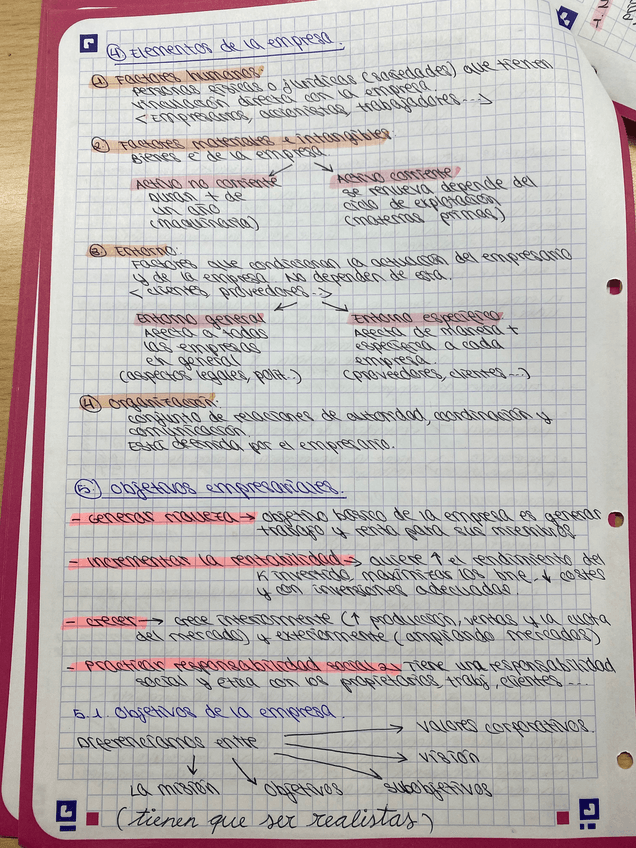 ④ Elementos de la empresa:
① Factores humanos:
Personas físicas o jurídicas (sociedades) que tienen
vinculación directa con la empresa.
< Empresarios, accionistas, trabajadores...>
② Factores materiales e intangibles:
Bienes e de la empresa
Activo no corriente
Duran + de
un año
(maquinaria)
Activo corriente
se renueva depende del
ciclo de explotación
(materias primas)
③ Entorno:
Factores que condicionan la actuación del empresario
y de la empresa. No dependen de esta.
< clientes, proveedores...>
Entorno general
Afecta a todas
las empresas
en general
(aspectos legales, polít..)
Entorno específico
Afecta de manera +
específica a cada
empresa.
(proveedores, clientes...)
④ Organización:
conjunto de relaciones de autoridad, coordinación y
comunicación.
Está definida por el empresario.
⑤ Objetivos empresariales.
- Generar riqueza → objetivo básico de la empresa es generar
trabajo y renta para sus miembros
- Incrementar la rentabilidad → quiere ↑ el rendimiento del
K invertido, maximizas los bne. ↓ costes
y con inversiones adecuadas.
- Crecer → crece interiormente (↑ producción, ventas y la cuota
del mercado) y exteriormente (ampliando mercados)
- Practicar responsabilidad social → Tiene una responsabilidad
social y ética con los propietarios, trabj, clientes...
5.1. Objetivos de la empresa.
Diferenciamos entre
valores corporativos.
visión
subobjetivos
objetivos
La misión
(tienen que ser realistas)
1.2